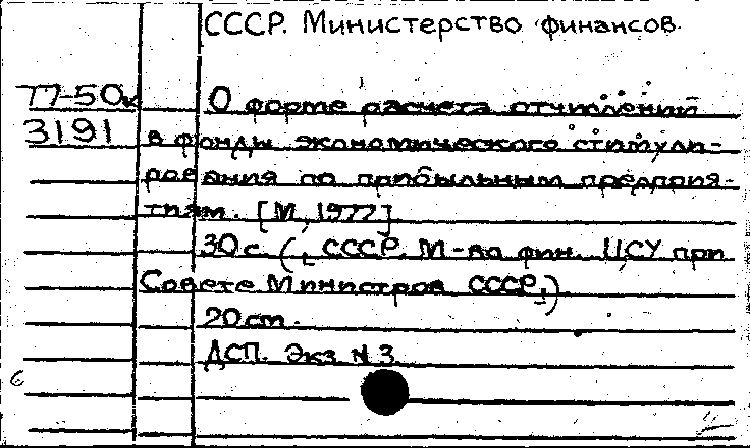 СССР. Министерство финансов.
Т7-50к О форме расчета отчислений
3191 в фонды экономического стимули-
рования по прибыльным предприя-
тиям. [М., 1977]
30 с. (, СССР. М-во фин. ЦСУ при
Совете Министров СССР,)
20 см.
ДСП. Экз. N 3
6